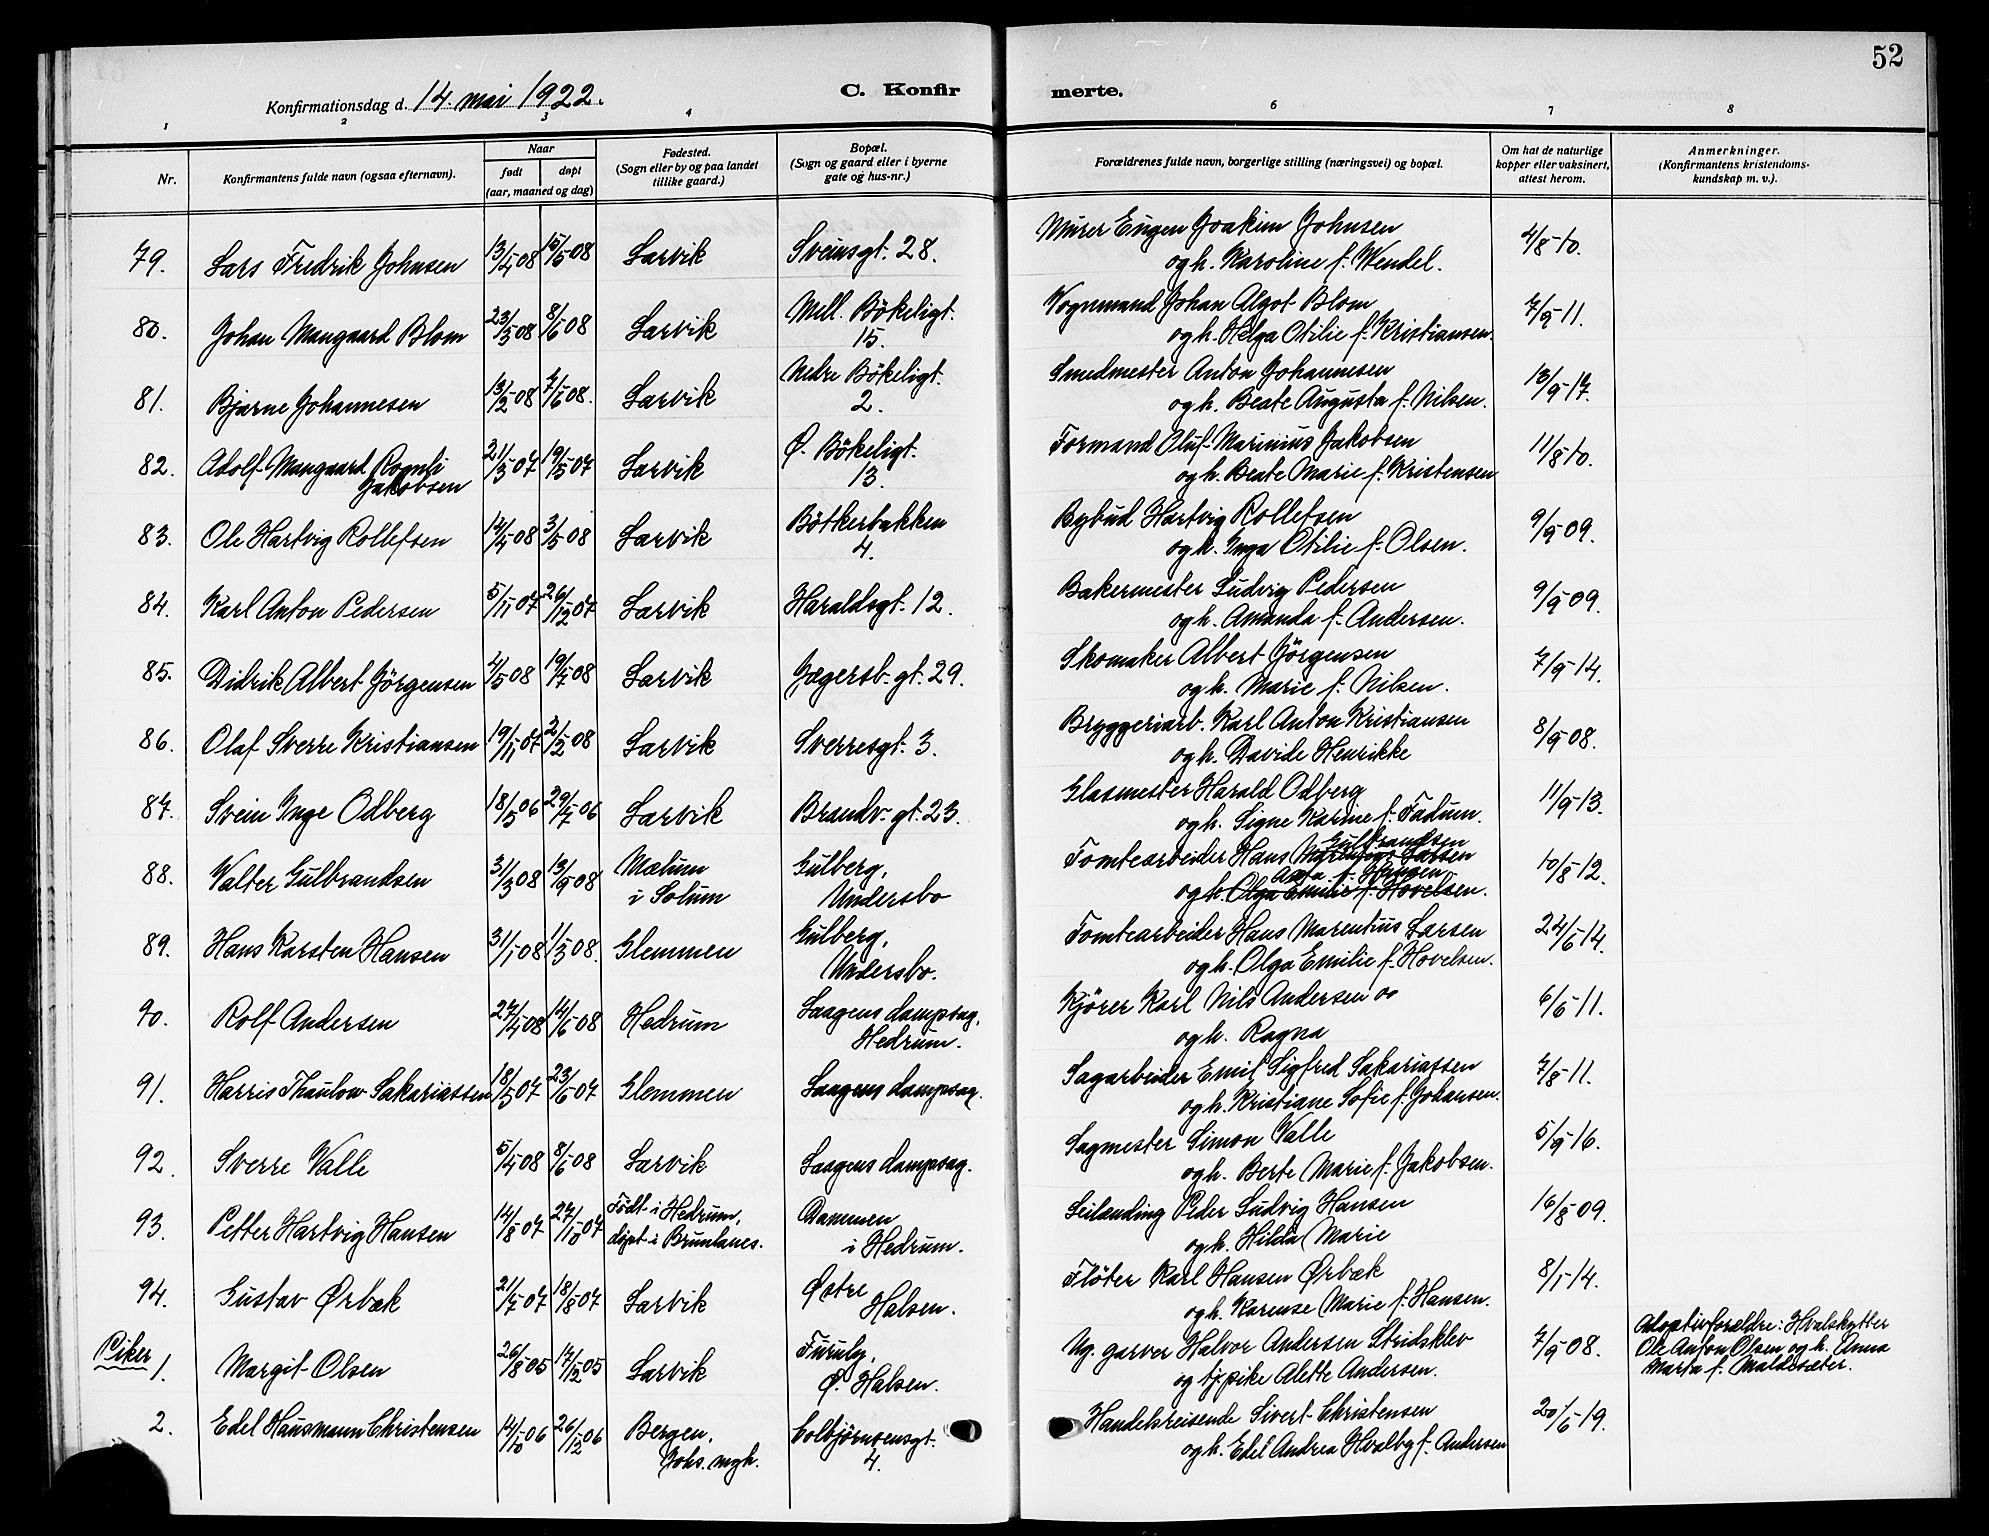 52
Konfirmationsdag d. 14. mai 1922.
C. Konfir
merte.
1 2 3 4 6 7 8
Nr.
Konfirmantens fulde navn (ogsaa efternavn).
Naar
født
døpt
(aar, maaned og dag)
Fødested.
(Sogn eller by og paa landet
tillike gaard.)
Bopæl.
(Sogn og gaard eller i byerne
gate og hus-nr.)
Forældrenes fulde navn, borgerlige stilling (næringsvei) og bopæl.
Om hat de naturlige
kopper eller vaksinert,
attest herom.
Anmerkninger.
(Konfirmantens kristendoms-
kundskap m. v.).
79. Lars Fredrik Johnsen 13/4 08 15/6 08 Larvik Sveinsgt. 28. Murer Eugen Joakim Johnsen 4/8-10.
og h. Karoline f. Wendel.
80. Johan Mangaard Blom 23/3 08 8/6 08 Larvik Mell. Bökeligt. Vognmand Johan Algot Blom 7/9-11.
15. og h. Helga Otilie f. Kristiansen.
81. Bjarne Johannesen 13/2 08 7/6 08. Larvik Nedre Bökeligt. Smedmester Anton Johannesen 13/9-17.
2. og h. Beate Augusta f. Nilsen.
82. Adolf Mangaard Rognli 21/3 07 19/5 07 Larvik Ø. Bökeligt. Formand Oluf Marinius Jakobsen 11/8-10.
Jakobsen 13. og h. Beate Marie f. Kristensen
83. Ole Hartvig Rollefsen 12/4 08 3/5 08 Larvik Bötkerbakken Bybud Hartvig Rollefsen 9/9-09.
4. og h. Inga Otilie f. Olsen.
84. Karl Anton Pedersen 5/11 07 26/12 07 Larvik Haraldsgt. 12. Bakermester Ludvig Pedersen 9/9-09.
og h. Amanda f. Andersen.
85. Didrik Albert Jörgensen 4/5 08 19/7 08 Larvik Jægersb. gt. 29. Skomaker Albert Jörgensen 7/9-14.
og h. Marie f. Nilsen.
86. Olaf Sverre Kristiansen 19/11 07 2/2 08 Larvik Sverresgt. 3. Bryggeriarb. Karl Anton Kristiansen 8/9-08.
og h. Davide Henrikke
87. Svein Inge Odberg 18/5 06 29/7 06 Larvik Brandv. gt. 23. Glasmester Harald Odberg 11/9-13.
og h. Signe Karine f. Fadum.
88. Valter Gulbrandsen 31/3 08 13/9 08 Mælum Gulberg, Tomtearbeider Hans Marentius Larsen Gulbrandsen 10/8-12.
i Solum Undersbo og h. Olga Emilie f. Hovelsen. Anna f. Hansen
89. Hans Karsten Hansen 31/1 08 1/3 08. Glemmen Gulberg, Tomtearbeider Hans Marentius Larsen 24/6-14.
Undersbo. og h. Olga Emilie f. Hovelsen.
90. Rolf Andersen 27/4 08 14/6 08 Hedrum Laagens dampsag, Kjörer Karl Nils Andersen 6/5-11.
Hedrum. og h. Ragna
91. Harris Thaulow Sakariassen 18/5 07 23/6 07 Glemmen Laagens dampsag. Sagarbeider Emil Sigfred Sakariassen 7/8-11.
og h. Kristiane Sofie f. Johansen.
92. Sverre Valle 5/4 08 8/6 08 Larvik Laagens dampsag. Sagmester Simon Valle 5/9-16.
og h. Berte Marie f. Jakobsen.
93. Petter Hartvig Hansen 14/8 07 27/10 07 Födt i Hedrum, Dammen Leilænding Peder Ludvig Hansen 16/8-09.
döpt i Brunlanes. i Hedrum. og h. Hilda Marie
94. Gustav Ørbæk 21/7 07 18/8 07 Larvik Østre Flöter Karl Hansen Ørbæk 8/1-14.
Halsen. og h. Karense Marie f. Hansen.
Piker 1. Margit Olsen 26/8 05 17/12 05 Larvik Furuly, Ug. garver Halvor Andersen Stridsklev 7/9-08. Adoptivforældre: Hvalskytter
Ø. Halsen. og tj. pike Alette Andersen. Ole Anton Olsen og h. Anna
Marta f. Maldesæter.
2. Edel Hausmann Christensen 14/10 06 26/12 06 Bergen, Colbjörnsensgt. Handelsreisende Sivert Christensen 20/6-19.
Johs. mgh. 4. og h. Edel Andrea Hvalby f. Andersen